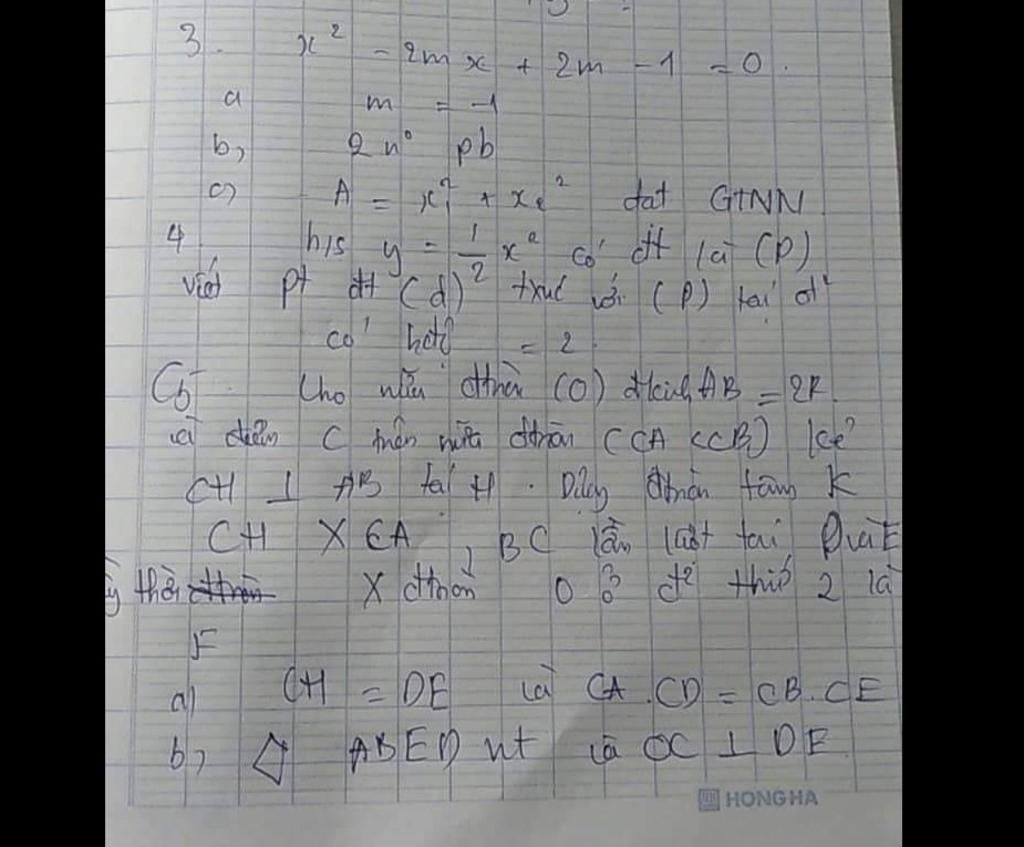 3. x² - 2m x + 2m - 1 = 0.
a m = -1
b, 2 n° pb
c, A = x₁² + x₂² đạt GTNN
4 h/s y = 1/2 x² có đt là (P)
viết pt đt (d) txúc với (P) tại
có hđộ = 2.
C5. Cho nửa đtròn (O) đkính AB = 2R.
và điểm C trên nửa đtròn (CA < CB) kẻ
CH ⊥ AB tại H. Dựng đtròn tâm K
CH X CA, BC lần lượt tại D và E
thời X đtròn O ở đ² thứ 2 là
F
a) CH = DE và CA.CD = CB.CE
b, ABED nt và OC ⊥ DE
HONG HA